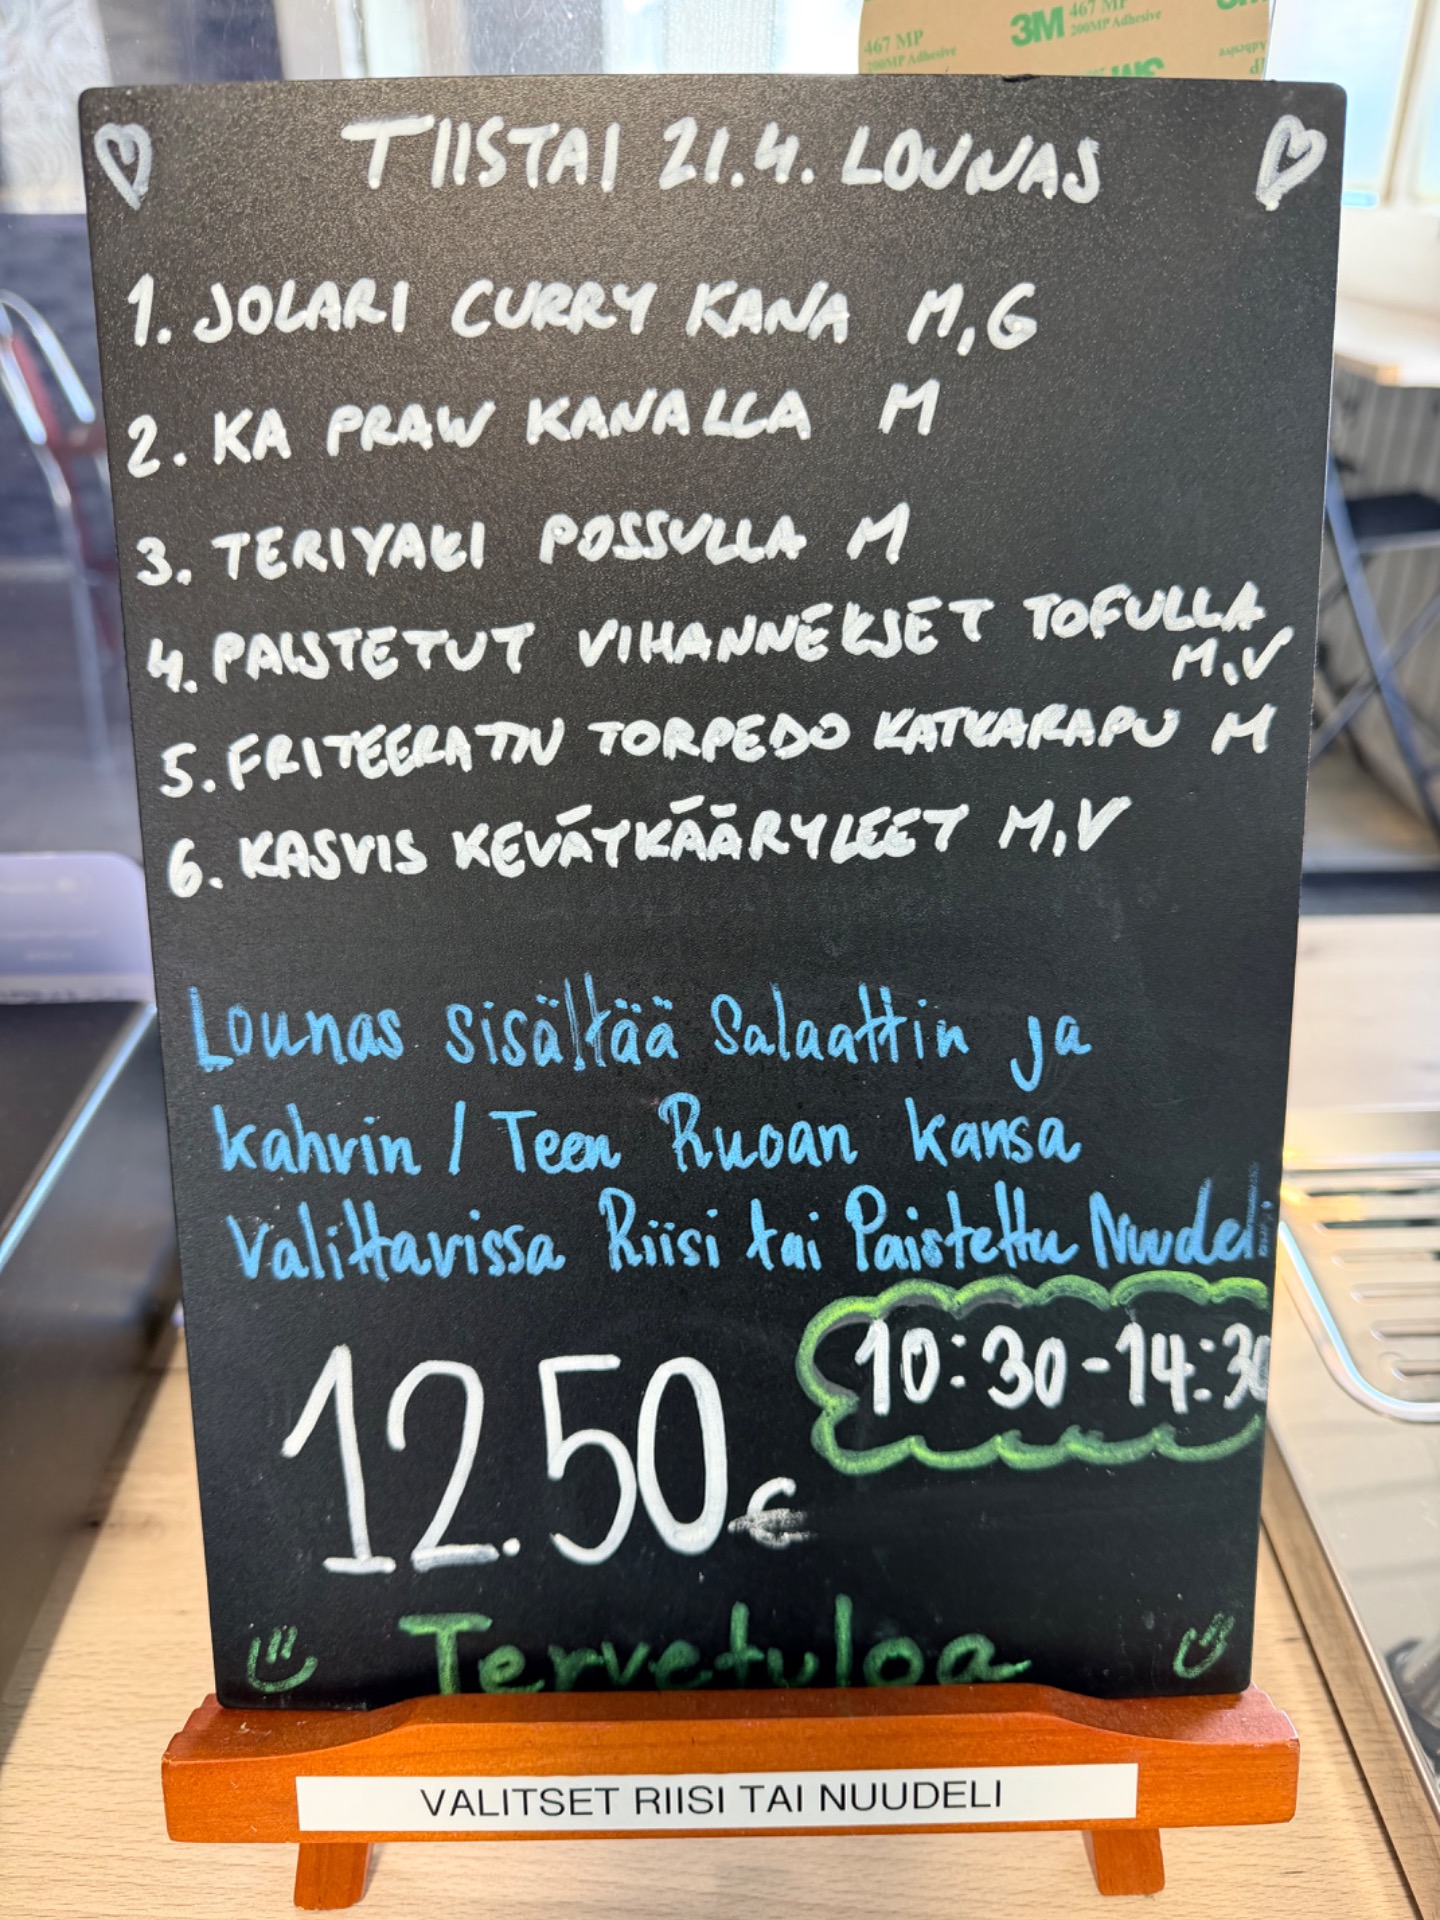 467 MP
200MP Adhesive
3M
467 MP
200MP Adhesive
TIISTAI 21.4. LOUNAS
1. JOLARI CURRY KANA M,G
2. KA PRAW KANALLA M
3. TERIYAKI POSSULLA M
4. PAISTETUT VIHANNEKSET TOFULLA
M,V
5. FRITEERATTU TORPEDO KATKARAPU M
6. KASVIS KEVÄTKÄÄRYLEET M,V
Lounas sisältää Salaattin ja
kahvin / Teen Ruoan kansa
Valittavissa Riisi tai Paistettu Nuudel
10:30-14:30
12.50€
Tervetuloa
VALITSET RIISI TAI NUUDELI